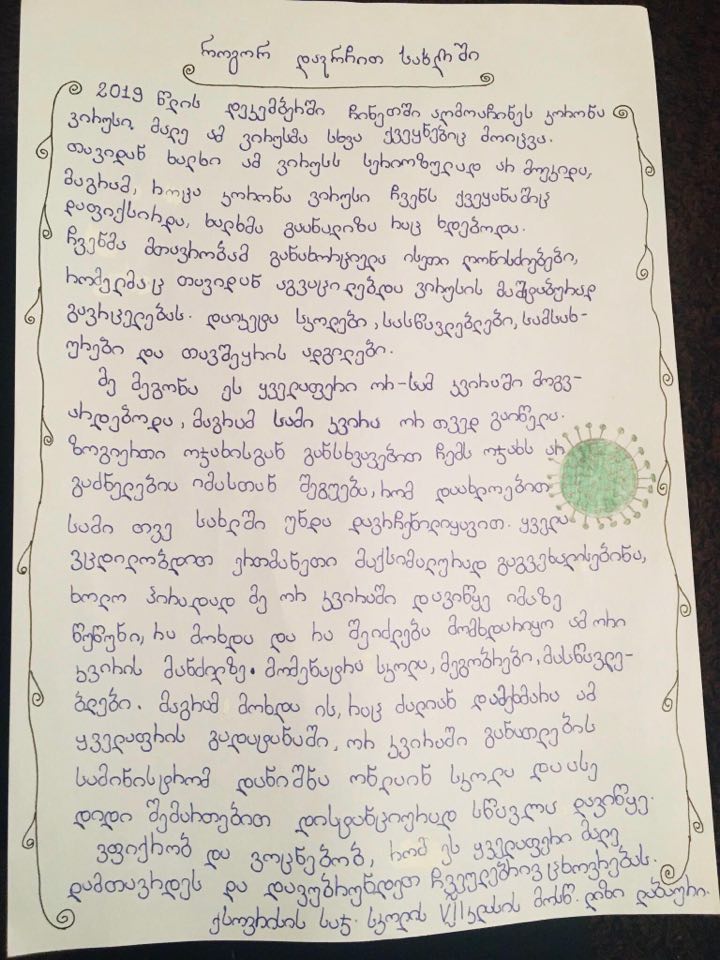 როგორ დავრჩით სახლში
2019 წლის დეკემბერში ჩინეთში აღმოაჩინეს კორონა
ვირუსი. მალე ამ ვირუსმა სხვა ქვეყნებიც მოიცვა.
თავიდან ხალხი ამ ვირუსს სერიოზულად არ მოეკიდა,
მაგრამ, როცა კორონა ვირუსი ჩვენს ქვეყანაშიც
დაფიქსირდა, ხალხმა გაანალიზა რაც ხდებოდა.
ჩვენმა მთავრობამ განახორციელა ისეთი ღონისძიებები,
რომელმაც თავიდან აგვაცილებდა ვირუსის მაშტაბურად
გავრცელებას. დაიკეტა სკოლები, სასწავლებლები, სამსახ-
ურები და თავშეყრის ადგილები.
მე მეგონა ეს ყველაფერი ორ-სამ კვირაში მოგვ-
არდებოდა, მაგრამ სამი კვირა ორ თვედ გაიწელა.
ზოგიერთი ოჯახისგან განსხვავებით ჩემს ოჯახს არ
გაძნელებია იმასთან შეგუება, რომ დაახლოებით
სამი თვე სახლში უნდა დავრჩენილიყავით. ყველა
ვცდილობდით ერთმანეთი მაქსიმალურად გაგვეხალისებინა,
ხოლო პირადად მე ორ კვირაში დავიწყე იმაზე
წუწუნი, რა მოხდა და რა შეიძლება მომხდარიყო ამ ორი
კვირის მანძილზე. მომენატრა სკოლა, მეგობრები, მასწავლე-
ბლები. მაგრამ მოხდა ის, რაც ძალიან დამეხმარა ამ
ყველაფრის გადატანაში, ორ კვირაში განათლების
სამინისტრომ დანიშნა ონლაინ სკოლა და ასე
დიდი შემართებით დისტანციურად სწავლა დავიწყე.
ვფიქრობ და ვოცნებობ, რომ ეს ყველაფერი მალე
დამთავრდეს და დავუბრუნდეთ ჩვეულებრივ ცხოვრებას.
ქსოვრისის საჯ. სკოლის VII კლასის მოსწ. ლიზი დაბაური.